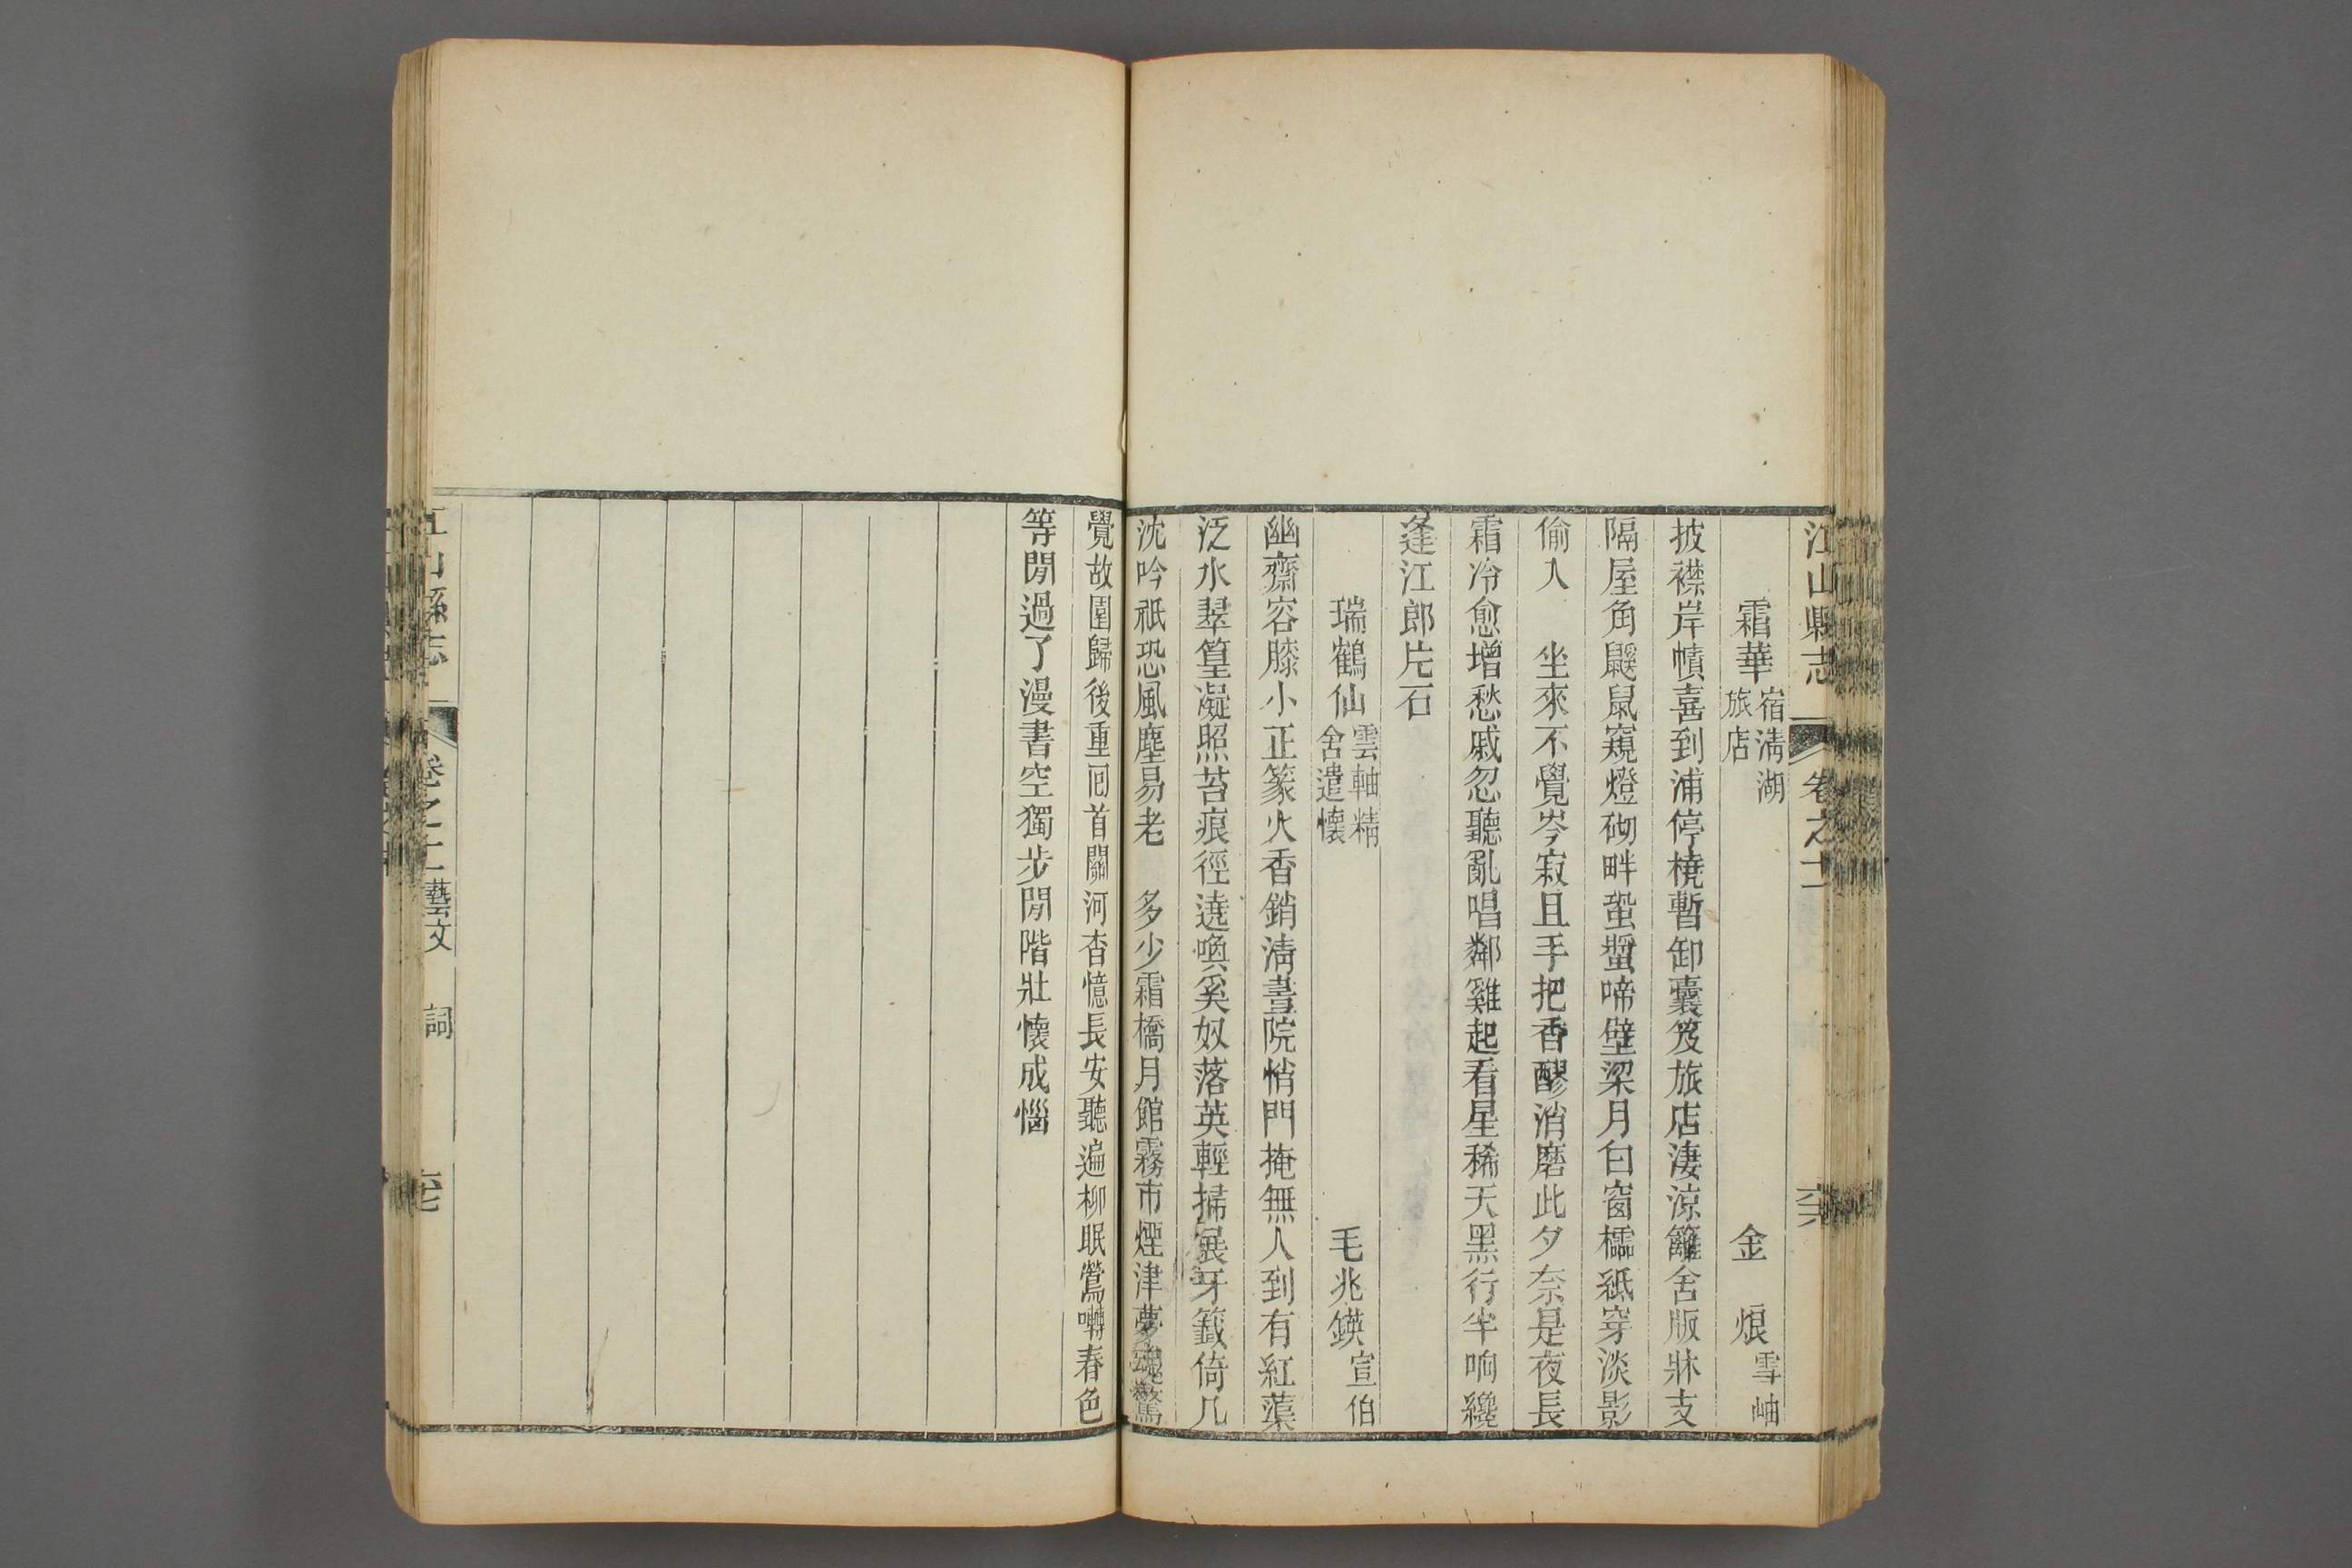 江山縣志 卷之十二 六六
霜華 宿淸湖旅店 金烺 雪岫
披襟岸幘喜到浦停橈暫卸囊笈旅店淒涼籬舍版牀支
隔屋角鼷鼠窺燈砌畔蛩螿啼壁梁月白窗櫺紙穿淡影
偷入 坐來不覺岑寂且手把香醪消磨此夕奈是夜長
霜冷愈增愁戚忽聽亂唱鄰雞起看星稀天黑行半晌纔
逢江郎片石
瑞鶴仙 雲軸精舍遣懷 毛兆鍈 宣伯
幽齋容膝小正篆火香銷淸晝院悄門掩無人到有紅蕖
泛水翠篁凝照苔痕徑遶喚奚奴落英輕掃展牙籤倚几
沈吟祇恐風塵易老 多少霜橋月館霧市煙津夢魂驚
覺故園歸後重回首關河杳憶長安聽遍柳眠鶯囀春色
等閒過了漫書空獨步閒階壯懷成惱
江山縣志 卷之十二 藝文 詞 六七